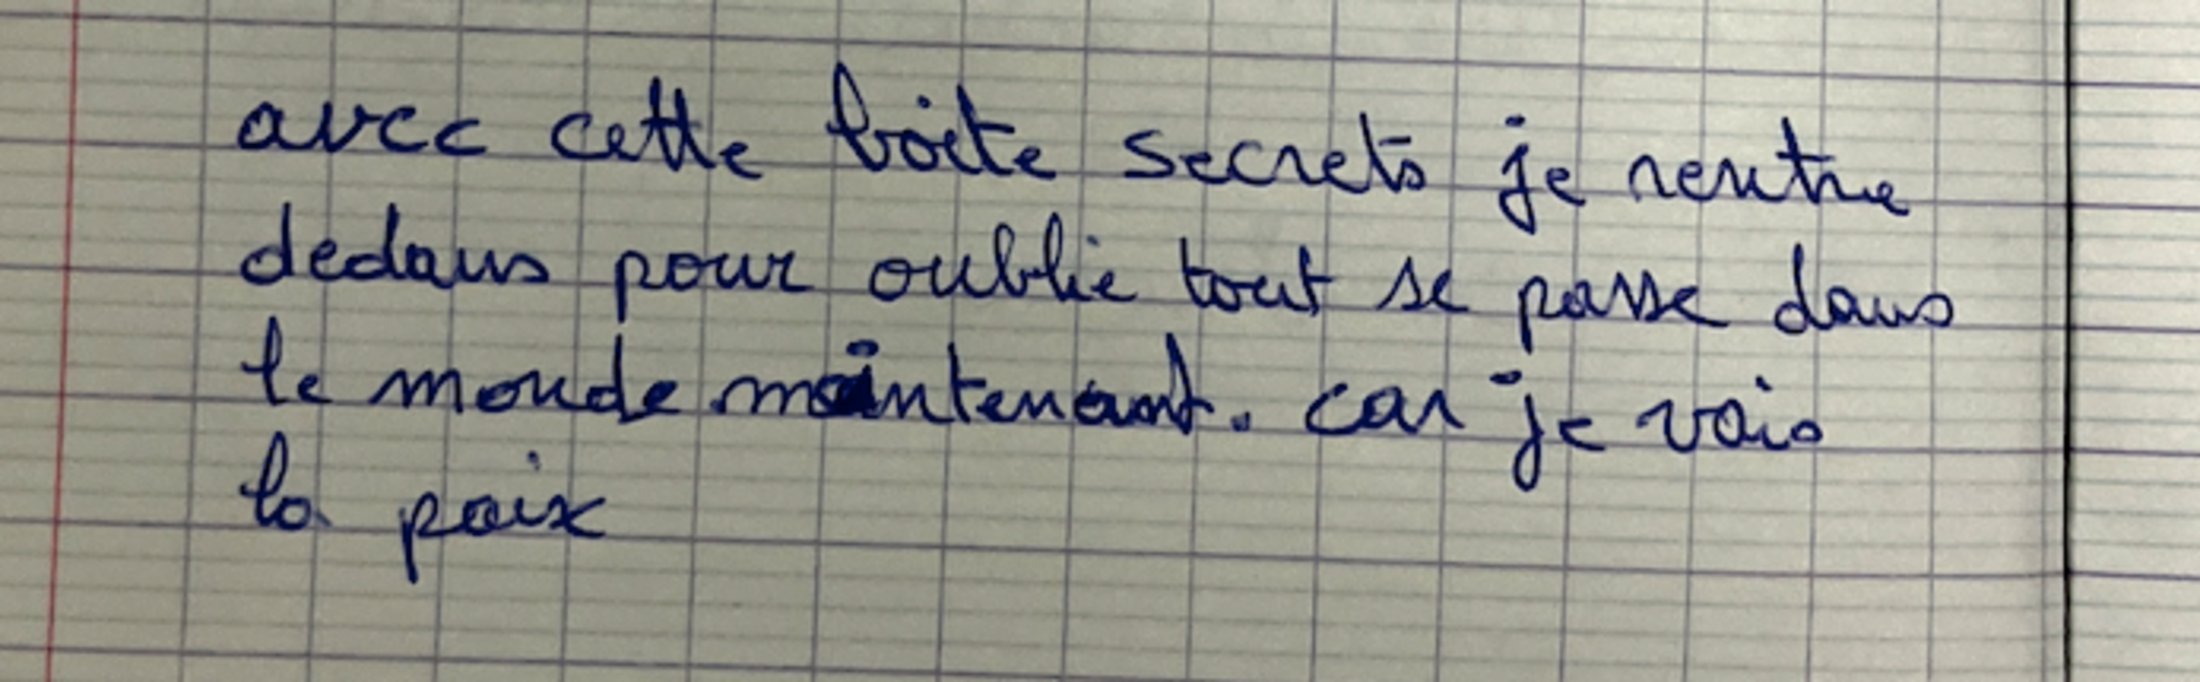 avec cette boite secrets je rentre
dedans pour oublie tout se passe dans
le monde maintenant. car je vais
la paix